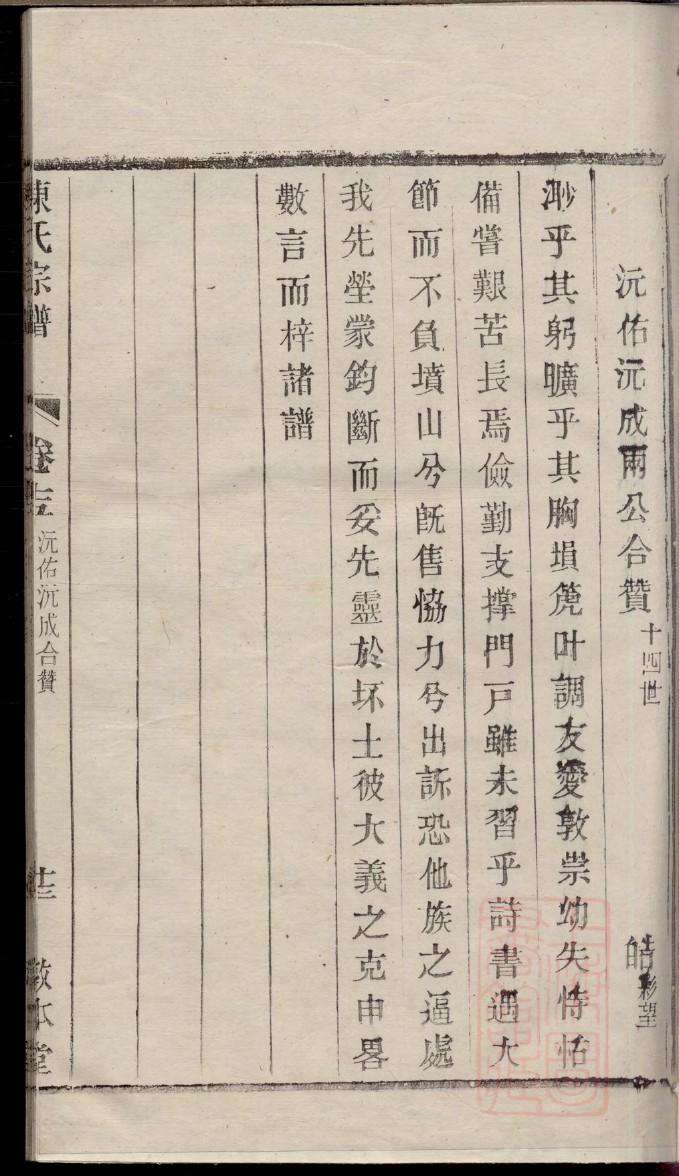 沅佑沅成兩公合贊 十四世 皓彩望
渺乎其躬曠乎其胸塤篪叶調友愛敦崇幼失恃怙
備嘗艱苦長焉儉勤支撐門戸雖未習乎詩書遇大
節而不負墳山兮旣售恊力兮出訴恐他族之逼處
我先塋蒙鈞斷而妥先靈於坏土彼大義之克申畧
數言而梓諸譜
陳氏宗譜 卷 沅佑沅成合贊 敦本堂